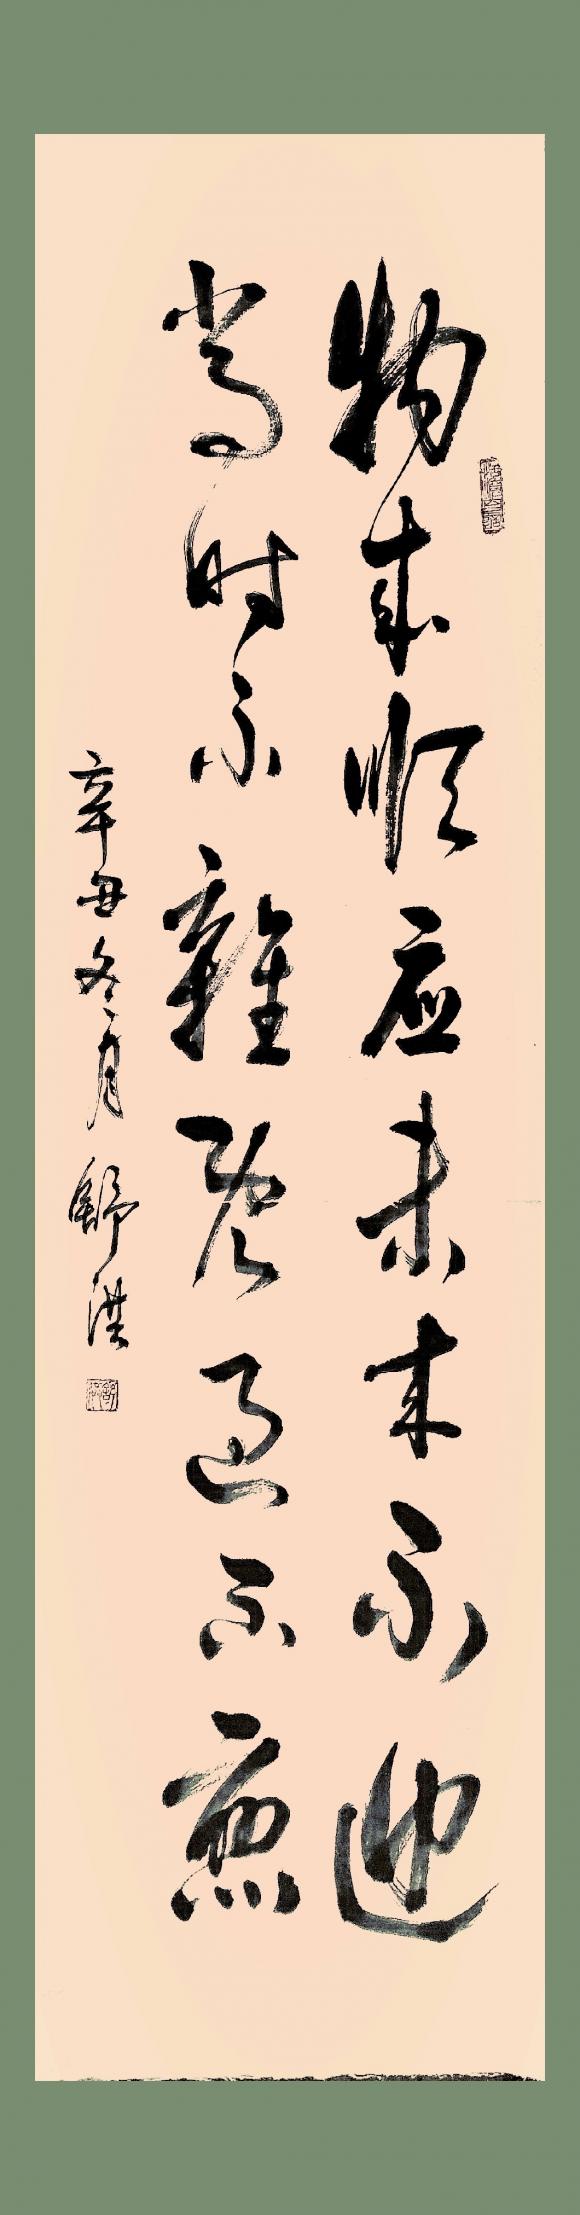 物来顺应未来不迎
当时不雜既过不恋
辛丑冬月舒洪